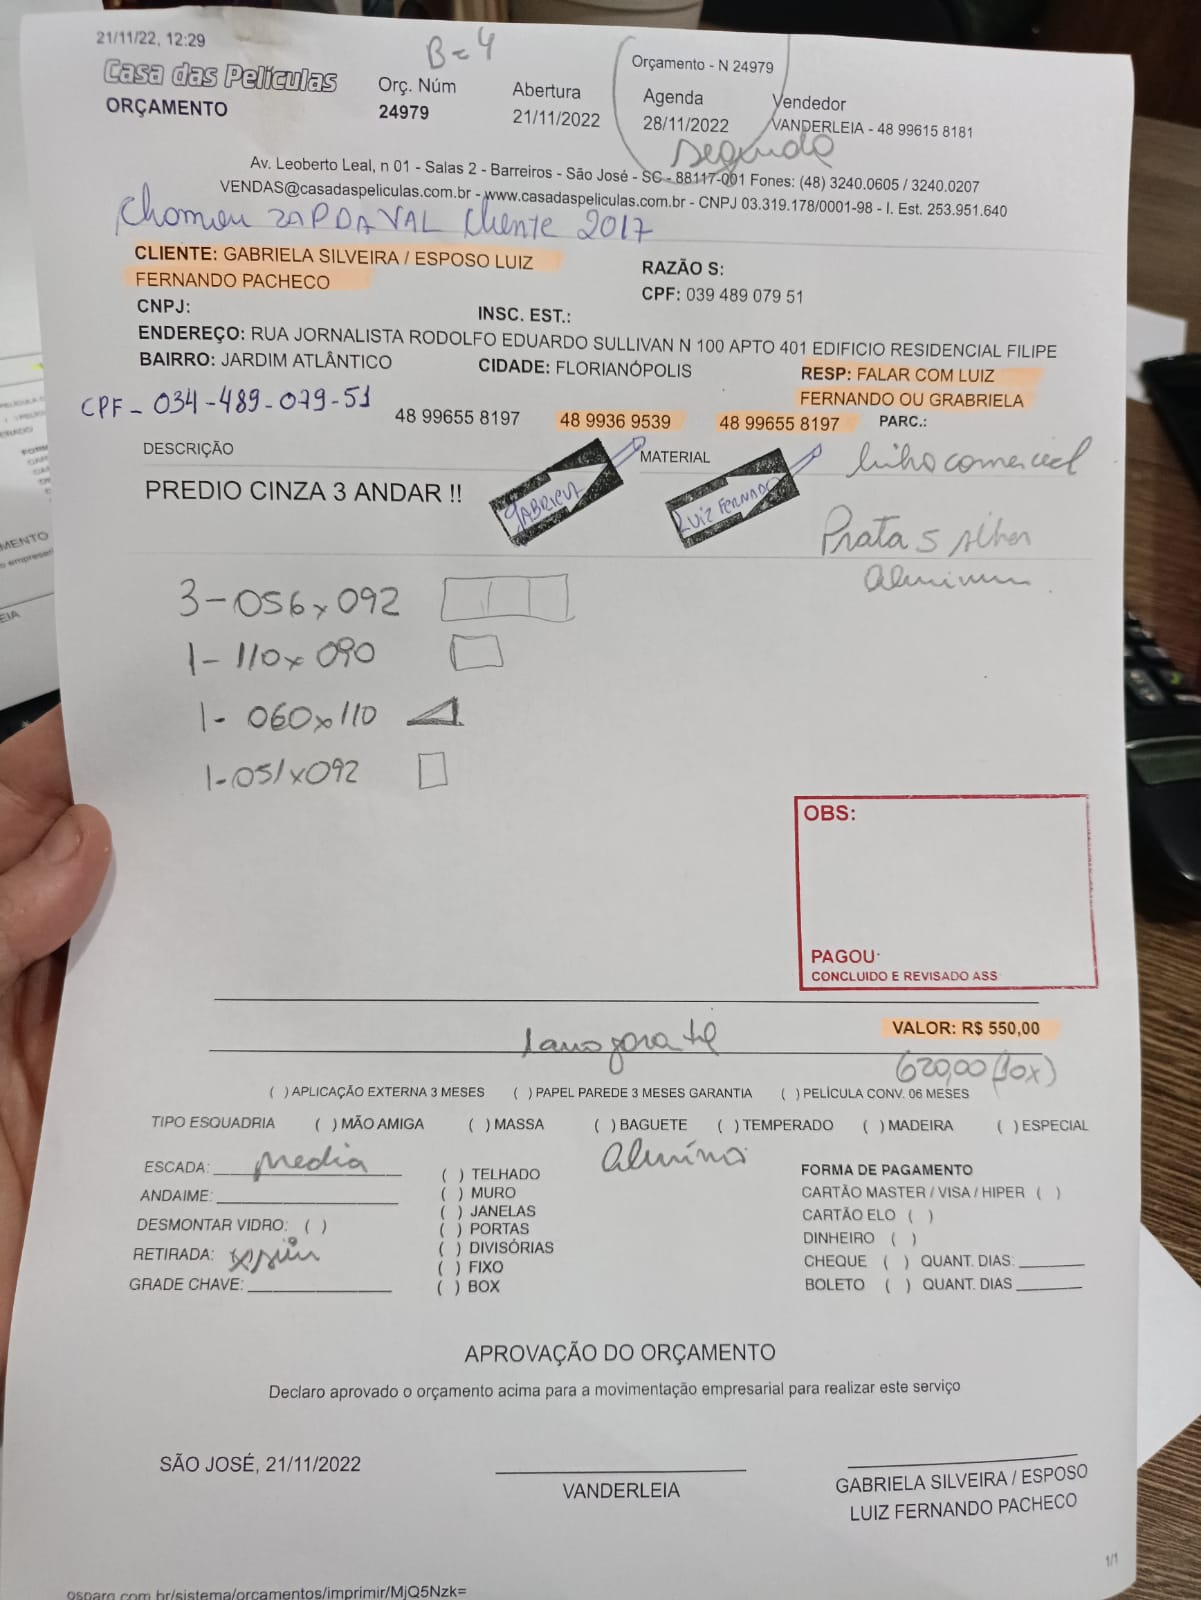 21/11/22, 12:29
B=4
Orçamento - N 24979
Casa das Películas
ORÇAMENTO
Orç. Núm
24979
Abertura
21/11/2022
Agenda
28/11/2022
Vendedor
VANDERLEIA - 48 99615 8181
segunda
Av. Leoberto Leal, n 01 - Salas 2 - Barreiros - São José - SC - 88117-001 Fones: (48) 3240.0605 / 3240.0207
VENDAS@casadaspeliculas.com.br - www.casadaspeliculas.com.br - CNPJ 03.319.178/0001-98 - I. Est. 253.951.640
chamou ZAP DA VAL cliente 2017
CLIENTE: GABRIELA SILVEIRA / ESPOSO LUIZ
FERNANDO PACHECO
RAZÃO S:
CPF: 039 489 079 51
CNPJ:
INSC. EST.:
ENDEREÇO: RUA JORNALISTA RODOLFO EDUARDO SULLIVAN N 100 APTO 401 EDIFICIO RESIDENCIAL FILIPE
BAIRRO: JARDIM ATLÂNTICO
CIDADE: FLORIANÓPOLIS
RESP: FALAR COM LUIZ
FERNANDO OU GRABRIELA
CPF - 034-489-079-51
48 99655 8197
48 9936 9539
48 99655 8197
PARC.:
DESCRIÇÃO
MATERIAL
linha comercial
PREDIO CINZA 3 ANDAR !!
GABRIELA
LUIZ FERNANDO
Prata 5 silver
aluminum
3-056x092
1-110x090
1-060x110
1-051x092
OBS:
PAGOU:
CONCLUIDO E REVISADO ASS
VALOR: R$ 550,00
620,00 (10x)
( ) APLICAÇÃO EXTERNA 3 MESES ( ) PAPEL PAREDE 3 MESES GARANTIA ( ) PELÍCULA CONV. 06 MESES
TIPO ESQUADRIA ( ) MÃO AMIGA ( ) MASSA ( ) BAGUETE ( ) TEMPERADO ( ) MADEIRA ( ) ESPECIAL
ESCADA: media
ANDAIME:
DESMONTAR VIDRO: ( )
RETIRADA:
GRADE CHAVE:
( ) TELHADO
( ) MURO
( ) JANELAS
( ) PORTAS
( ) DIVISÓRIAS
( ) FIXO
( ) BOX
FORMA DE PAGAMENTO
CARTÃO MASTER / VISA / HIPER ( )
CARTÃO ELO ( )
DINHEIRO ( )
CHEQUE ( ) QUANT. DIAS:
BOLETO ( ) QUANT. DIAS
APROVAÇÃO DO ORÇAMENTO
Declaro aprovado o orçamento acima para a movimentação empresarial para realizar este serviço
SÃO JOSÉ, 21/11/2022
VANDERLEIA
GABRIELA SILVEIRA / ESPOSO
LUIZ FERNANDO PACHECO
1/1
osparq.com.br/sistema/orcamentos/imprimir/MjQ5Nzk=